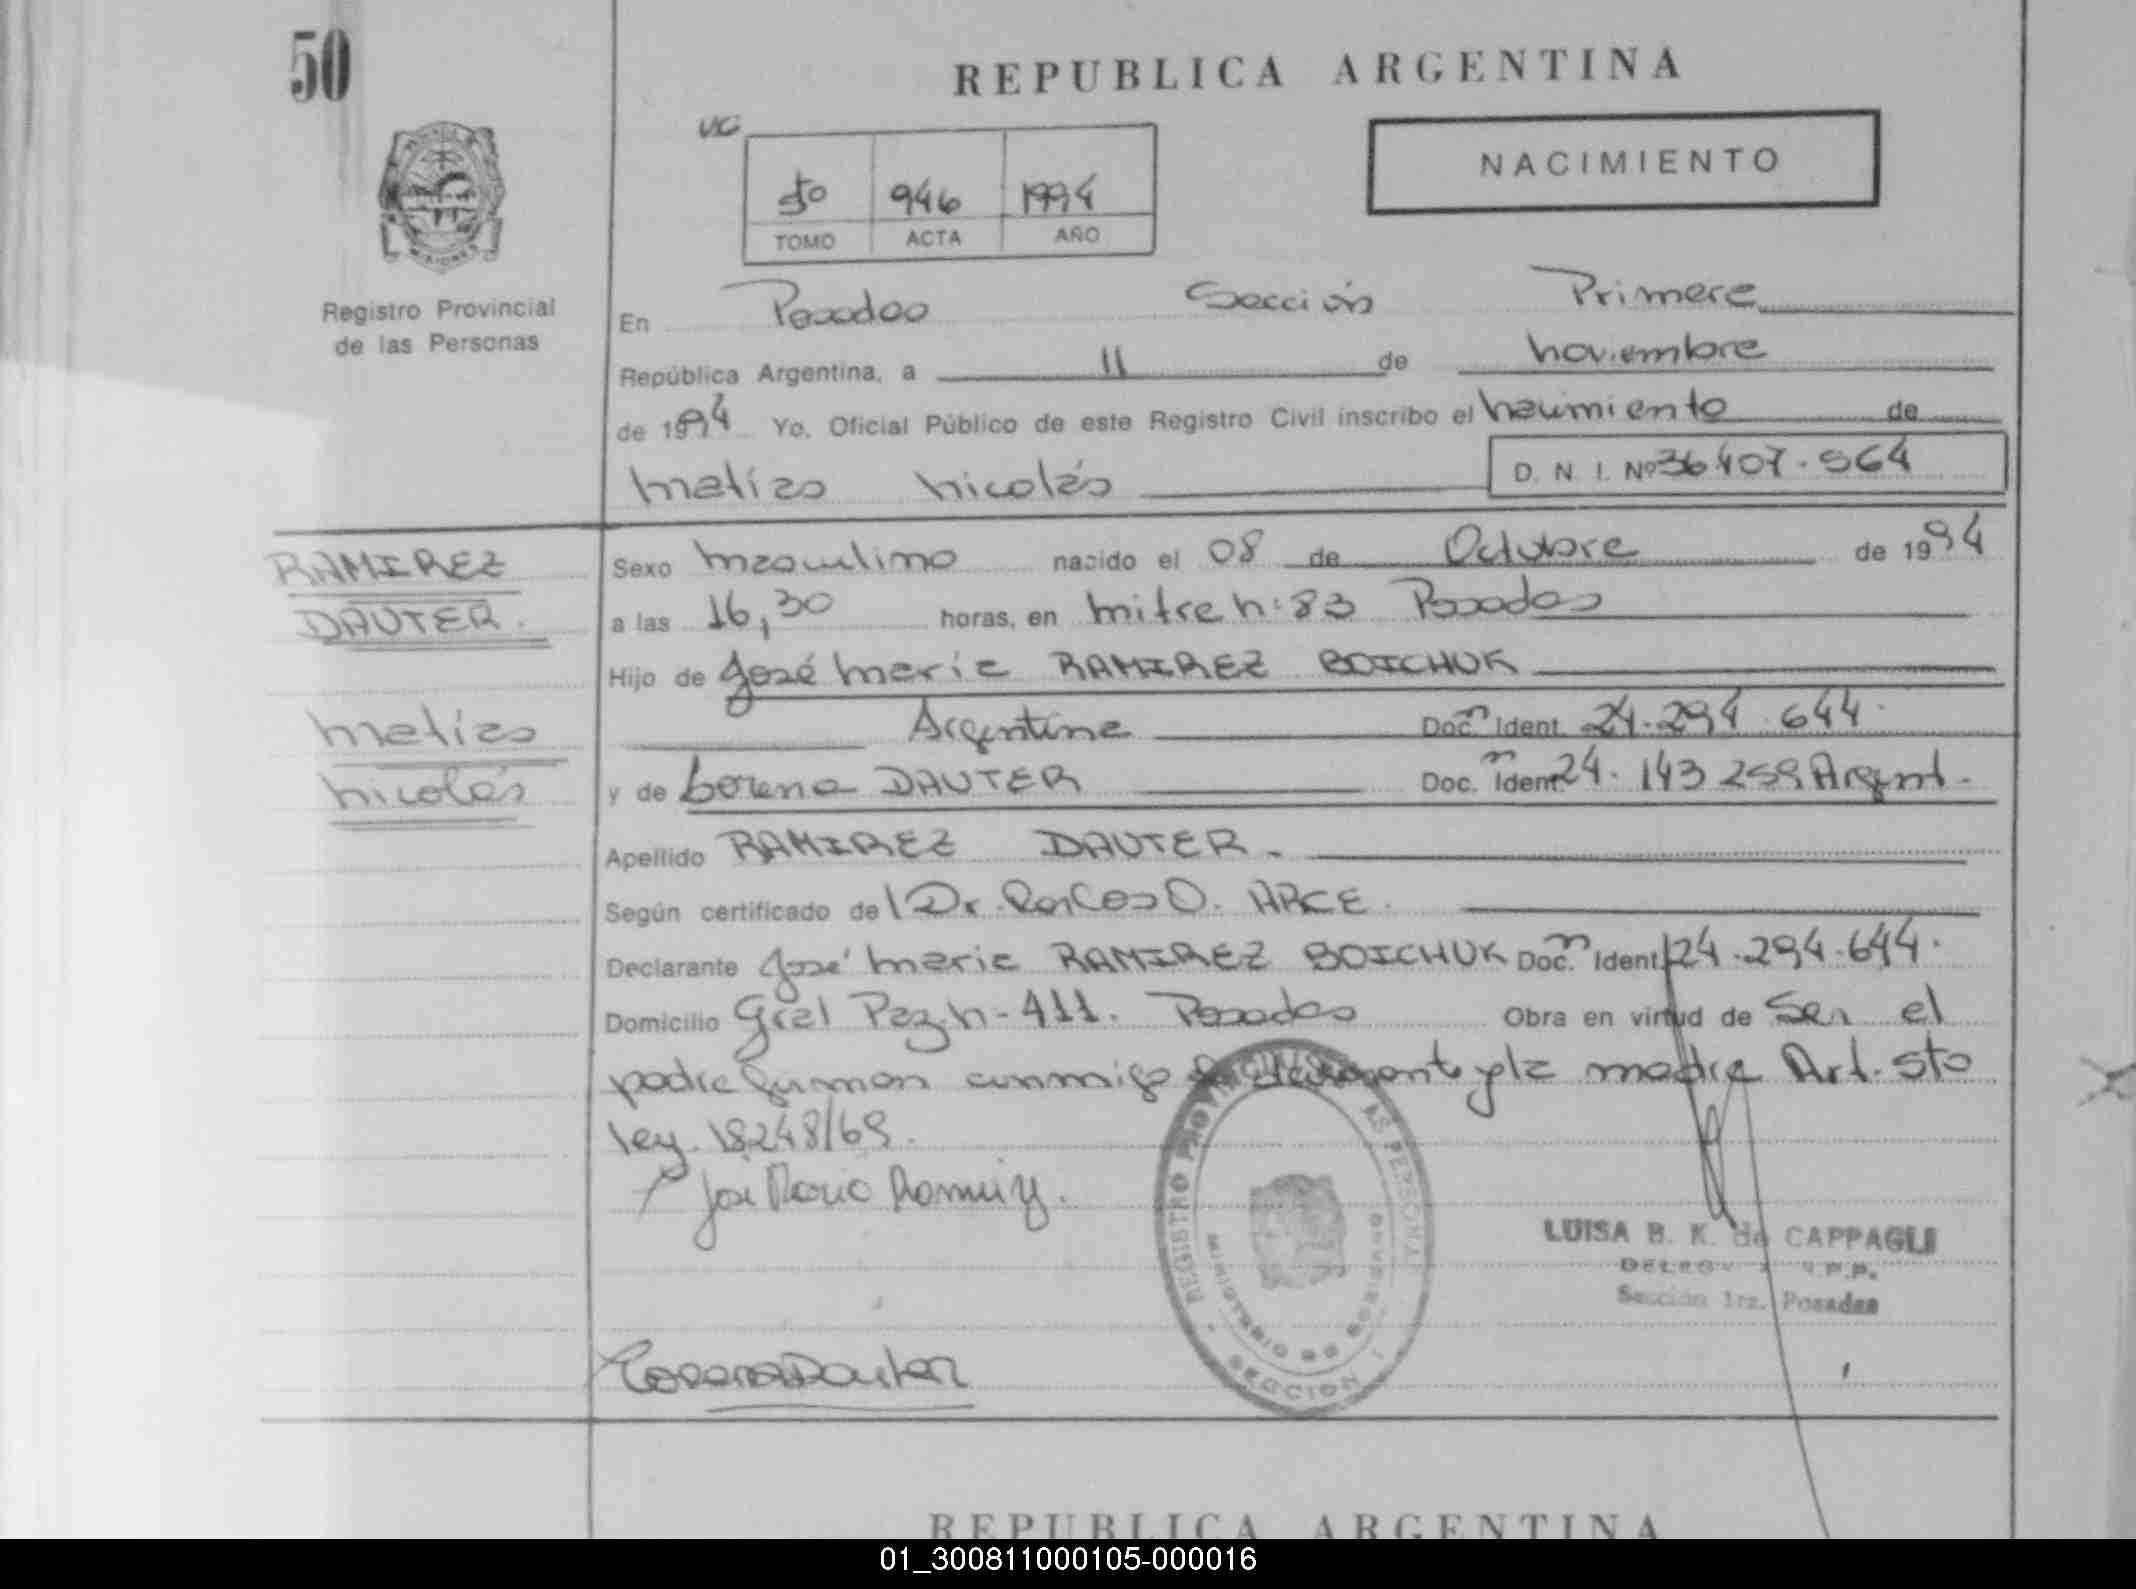 50
REPUBLICA ARGENTINA
NACIMIENTO
5º 946 1994
TOMO ACTA AÑO
Registro Provincial
de las Personas
En Posadas Sección Primera
República Argentina, a 11 de noviembre
de 1994 Yo, Oficial Público de este Registro Civil inscribo el nacimiento de
Matías Nicolás D. N. I. Nº 36.407.564
RAMIREZ
DAUTER.
Matías
Nicolás
Sexo Masculino nacido el 08 de Octubre de 1994
a las 16,30 horas, en Mitre n: 83 Posadas
Hijo de José María RAMIREZ BOICHUK
Argentina Doc. Ident. 24.294.644.
y de Lorena DAUTER Doc. Ident. 24.143 259 Argent.
Apellido RAMIREZ DAUTER.
Según certificado del Dr. Carlos O. ARCE.
Declarante José María RAMIREZ BOICHUK Doc. Ident 24.294.644.
Domicilio Gral Paz n- 411. Posadas Obra en virtud de Ser el
padre firman conmigo declarante y la madre Art. 5to
ley. 18248/69.
José Mario Ramirez.
REGISTRO PROVINCIAL DE LAS PERSONAS
MINISTERIO DE GOBIERNO
SECCION 1
LUISA B. K. de CAPPAGLI
Sección 1ra. Posadas
Lorena Dauter
REPUBLICA ARGENTINA
01_300811000105-000016